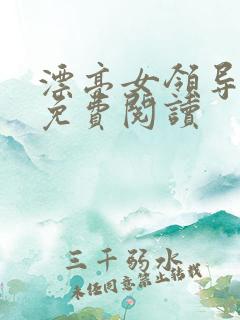 漂亮女領导
免費閱讀
三千弱水
未经同意禁止转载